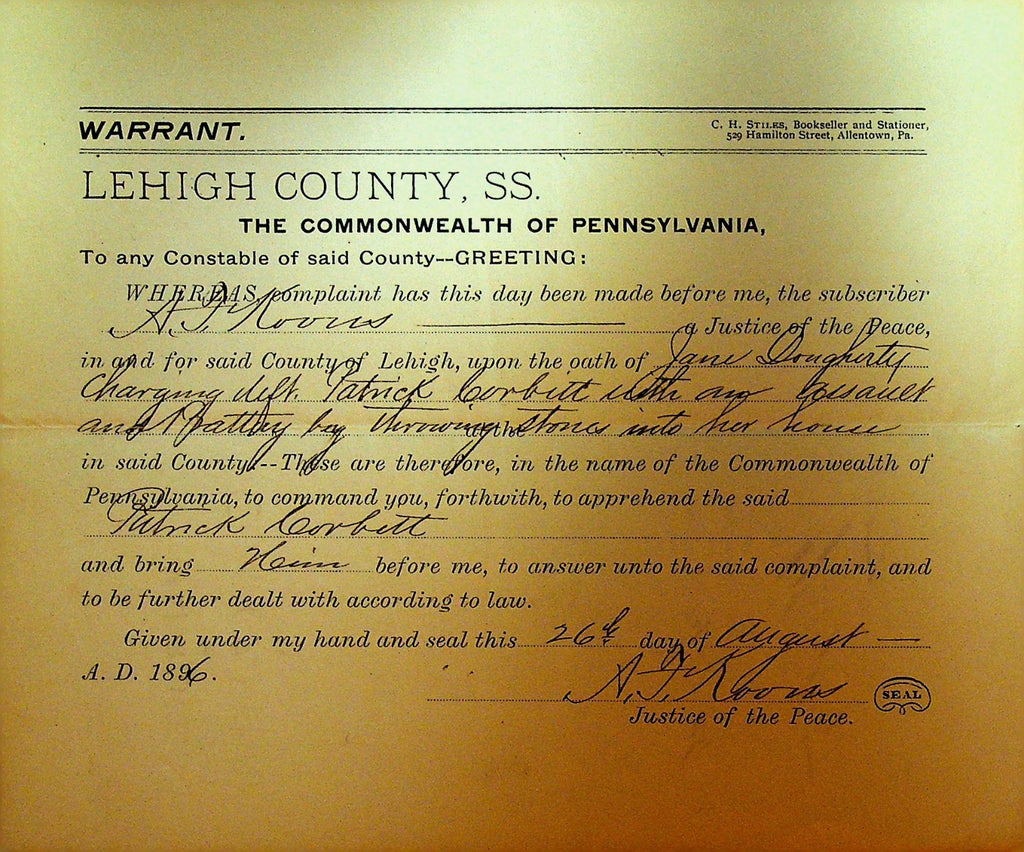 WARRANT.
C. H. STILES, Bookseller and Stationer,
529 Hamilton Street, Allentown, Pa.
LEHIGH COUNTY, SS.
THE COMMONWEALTH OF PENNSYLVANIA,
To any Constable of said County--GREETING:
WHEREAS, complaint has this day been made before me, the subscriber
A. F. Koons a Justice of the Peace,
in and for said County of Lehigh, upon the oath of Jane Dougherty
Charging deft. Patrick Corbett with an assault
and Battry by Throwing stones into her house
at the
in said County.--These are therefore, in the name of the Commonwealth of
Pennsylvania, to command you, forthwith, to apprehend the said
Patrick Corbett
and bring Him before me, to answer unto the said complaint, and
to be further dealt with according to law.
Given under my hand and seal this 26th day of August
A. D. 1896.
A. F. Koons SEAL
Justice of the Peace.